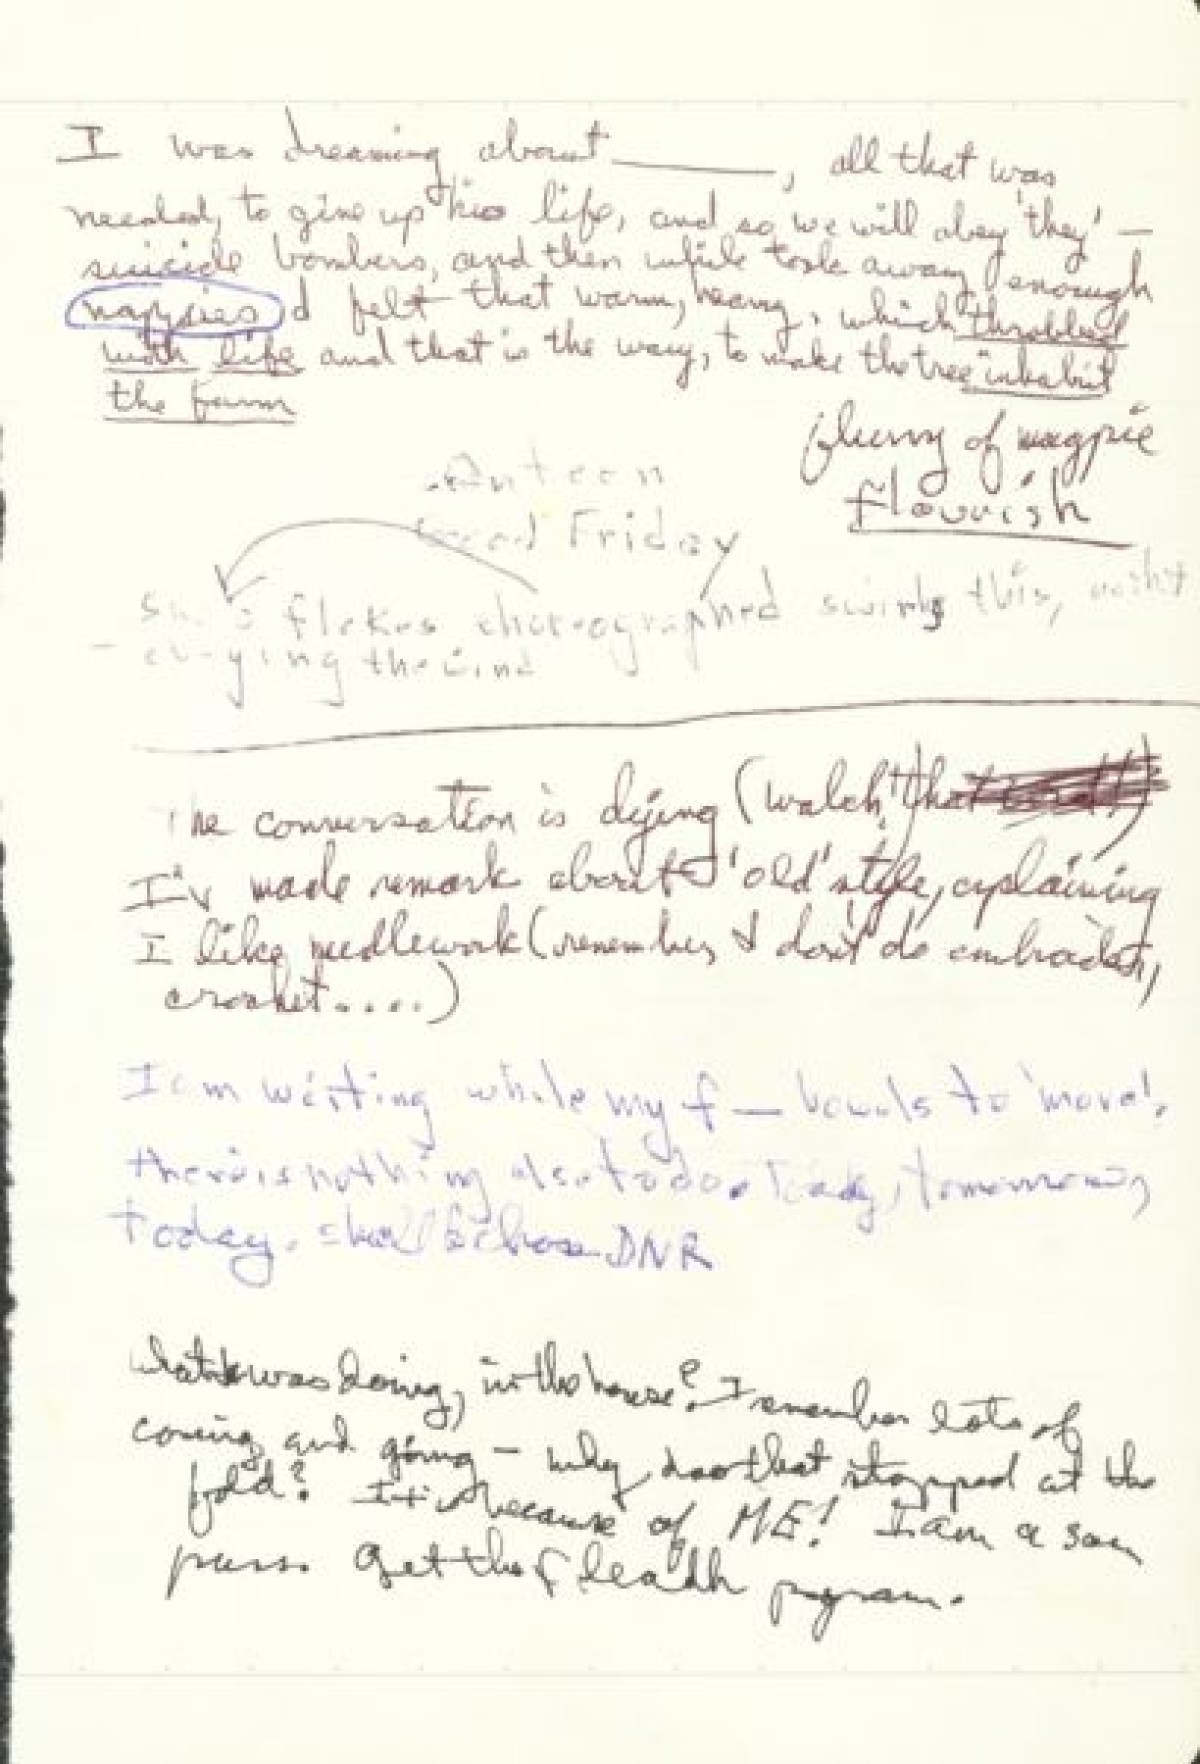 I was dreaming about ______, all that was
needed, to give up his life, and so we will obey 'they' —
suicide bombers, and then while took away enough
I felt that warm, heavy, which throbbed
with life and that is the way, to make the tree inhabit
the farm
flurry of magpie
flourish
Friday
flakes choreographed swirls this,
the wind
The conversation is dying (watch 'that
I'v made remark about 'old' style, explaining
I like needlework (remember, I don't do
crochet....)
I am writing while my f— bowels to 'move'.
there is nothing else to do. tomorrow,
today. shall DNR
was doing, in the house? I remember lots of
coming and going — why has that stopped at the
fold? It is because of ME! I am a
Get the f death program.